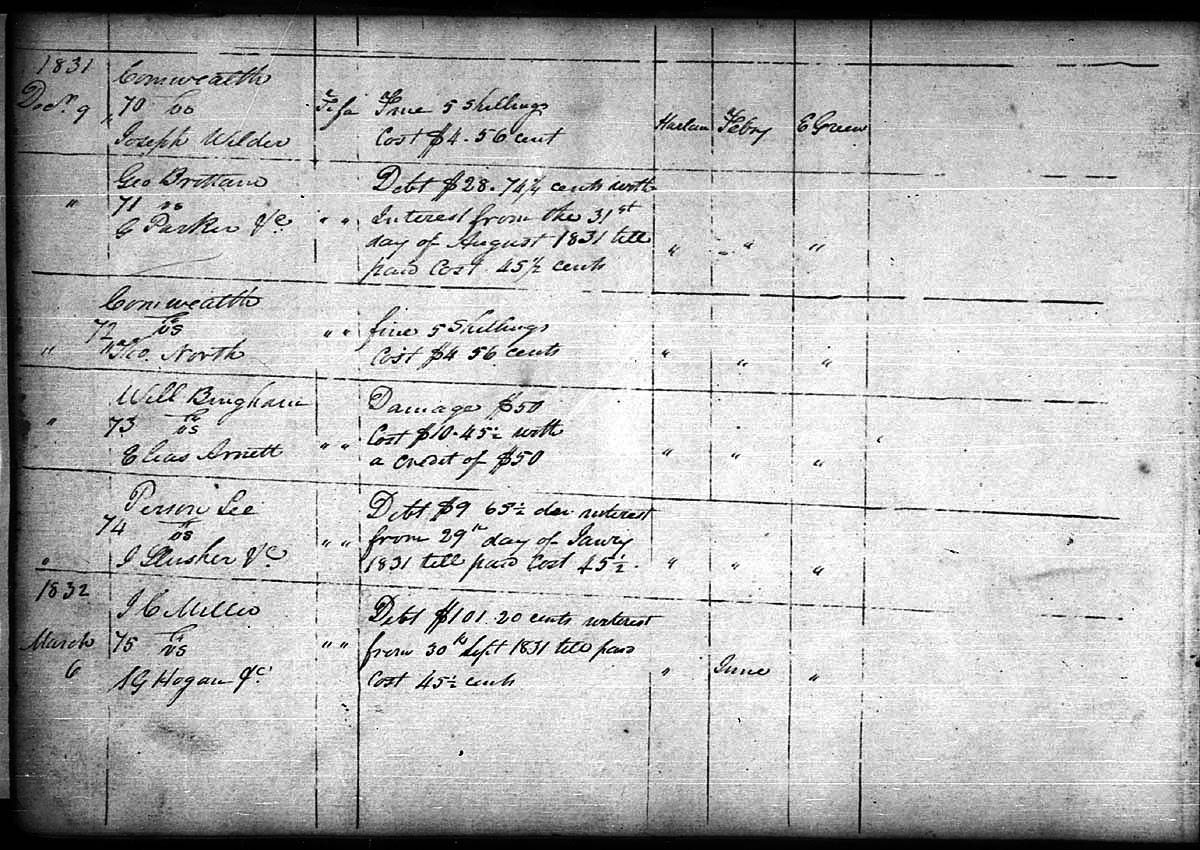 1831 Comwealth
Decr 9 70 vs Fi fa Fine 5 Shillings Harlan Feby E Green
Joseph Wilder Cost $4.56 cent
Geo Brittain Debt $28.74¼ cents with
" 71 vs " " Interest from the 31st " " "
E Parker &c day of August 1831 till
paid Cost 45½ cents
Comwealth
72 vs " " fine 5 Shillings
" Tho. North Cost $4 56 cents " " "
Will Bingham Damage $50
" 73 vs " " Cost $10.45½ with " " "
Elias Arnett a credit of $50
Person Lee Debt $9 63½ interest
74 vs " " from 29th day of Jawry
" J Slusher &c 1831 till paid Cost 45½. " " "
1832 J C Mills Debt $101.20 cents interest
March 75 vs " " from 30th Sept 1831 till paid
6 S G Hogan &c Cost 45½ cents " June "